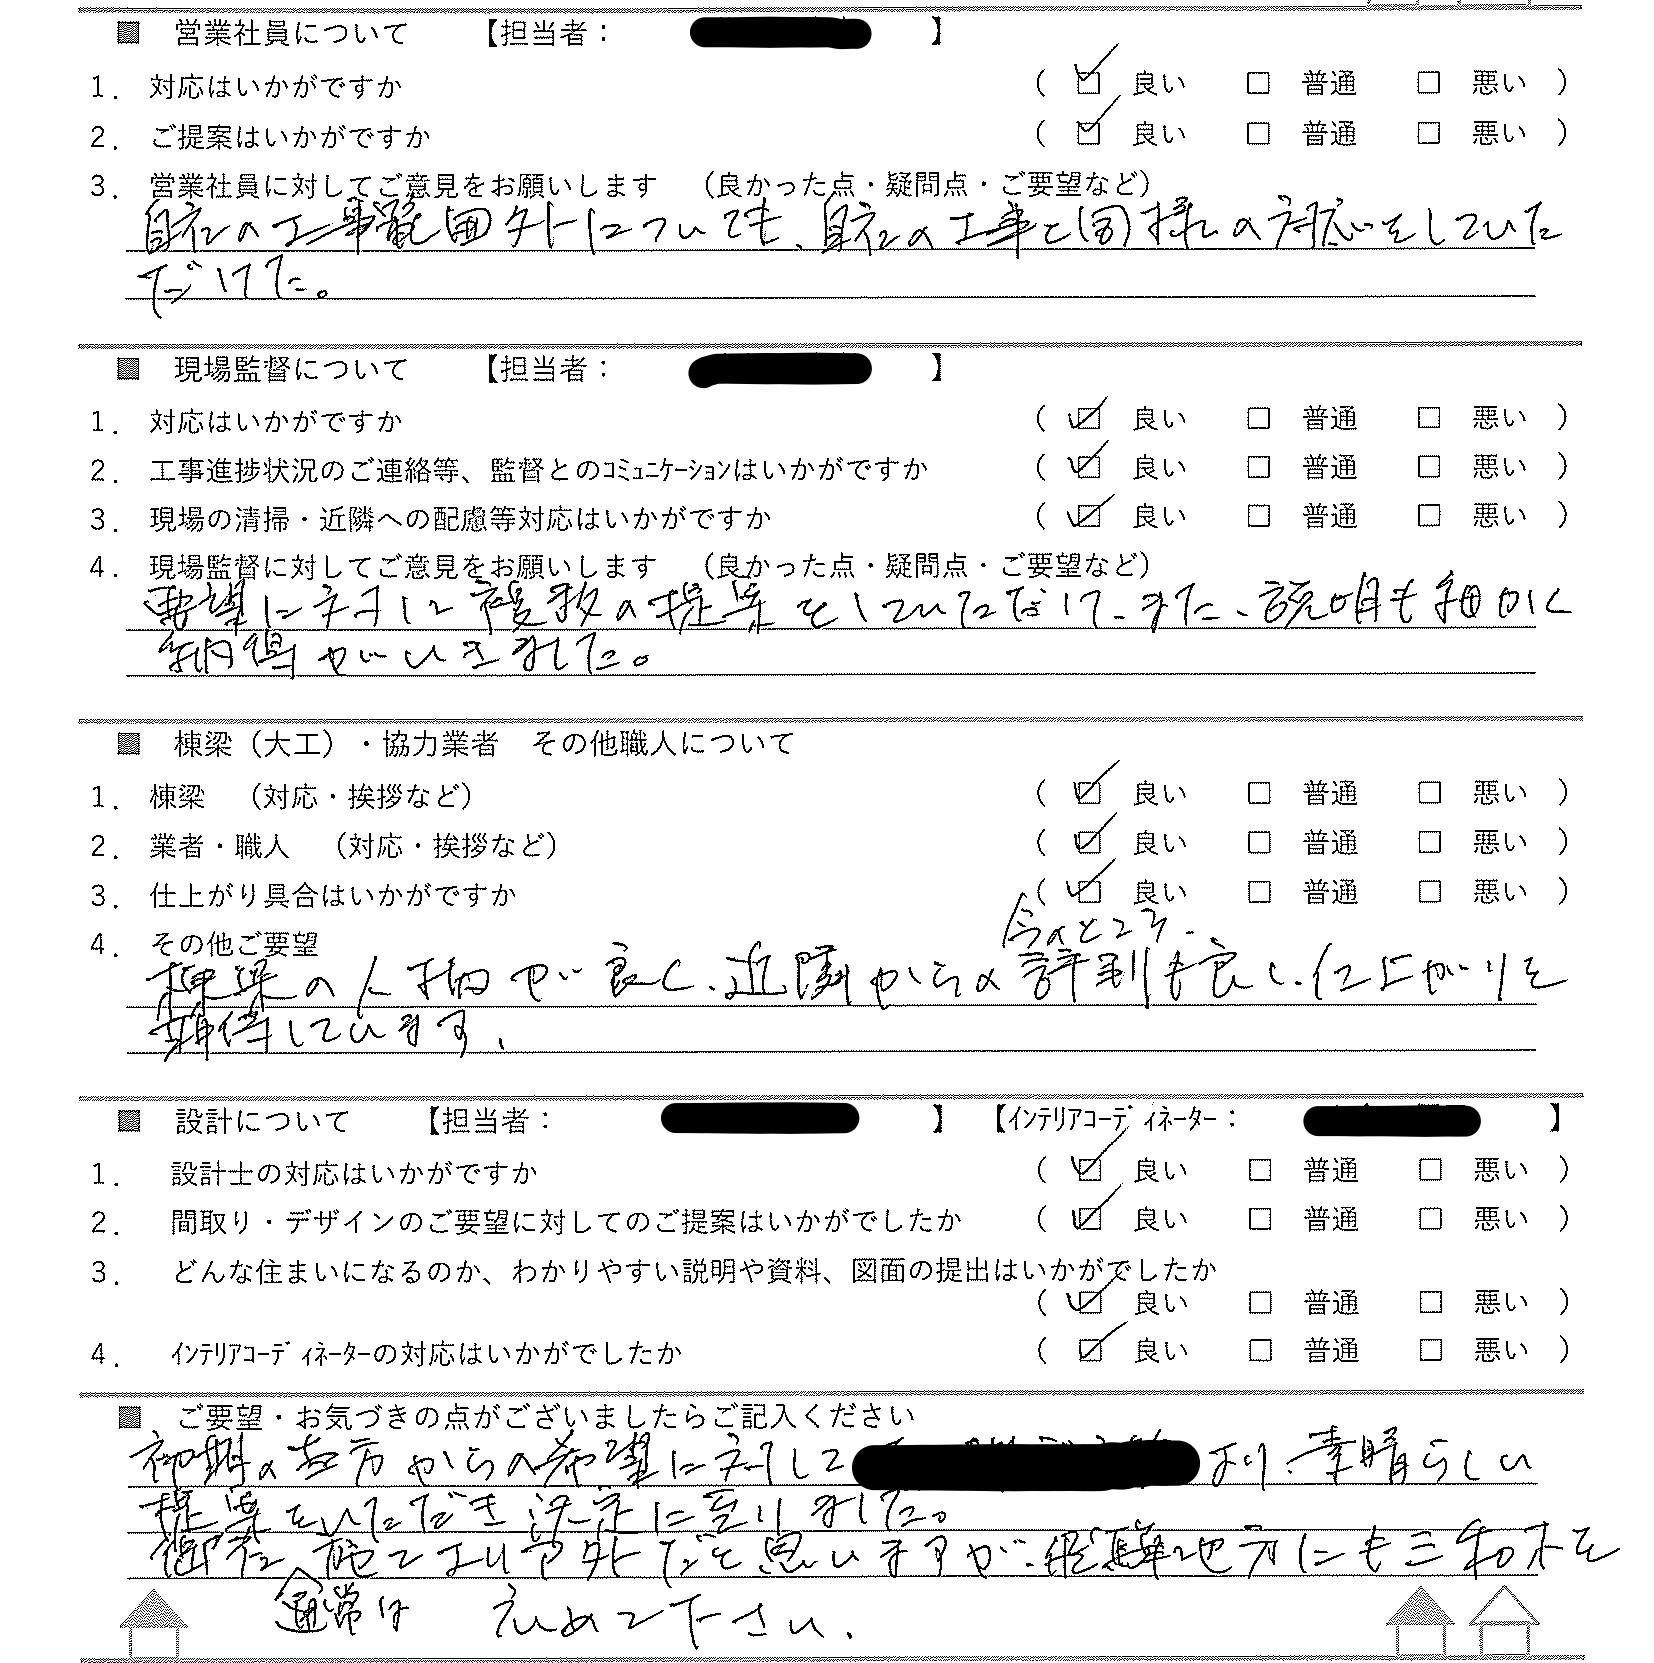 ■ 営業社員について 【担当者： 】
1． 対応はいかがですか （ ☑ 良い □ 普通 □ 悪い ）
2． ご提案はいかがですか （ ☑ 良い □ 普通 □ 悪い ）
3． 営業社員に対してご意見をお願いします （良かった点・疑問点・ご要望など）
自社の工事範囲外についても、自社の工事と同様の対応をしていた
だけた。
■ 現場監督について 【担当者： 】
1． 対応はいかがですか （ ☑ 良い □ 普通 □ 悪い ）
2． 工事進捗状況のご連絡等、監督とのｺﾐｭﾆｹｰｼｮﾝはいかがですか （ ☑ 良い □ 普通 □ 悪い ）
3． 現場の清掃・近隣への配慮等対応はいかがですか （ ☑ 良い □ 普通 □ 悪い ）
4． 現場監督に対してご意見をお願いします （良かった点・疑問点・ご要望など）
要望に対して複数の提案をしていただけ、また、説明も細かく
納得がいきました。
■ 棟梁（大工）・協力業者 その他職人について
1． 棟梁 （対応・挨拶など） （ ☑ 良い □ 普通 □ 悪い ）
2． 業者・職人 （対応・挨拶など） （ ☑ 良い □ 普通 □ 悪い ）
3． 仕上がり具合はいかがですか （ ☑ 良い □ 普通 □ 悪い ）
今のところ、
4． その他ご要望
棟梁の人柄が良く、近隣からの評判も良く、仕上がりを
期待しています。
■ 設計について 【担当者： 】 【ｲﾝﾃﾘｱｺｰﾃﾞｨﾈｰﾀｰ： 】
1． 設計士の対応はいかがですか （ ☑ 良い □ 普通 □ 悪い ）
2． 間取り・デザインのご要望に対してのご提案はいかがでしたか （ ☑ 良い □ 普通 □ 悪い ）
3． どんな住まいになるのか、わかりやすい説明や資料、図面の提出はいかがでしたか
（ ☑ 良い □ 普通 □ 悪い ）
4． ｲﾝﾃﾘｱｺｰﾃﾞｨﾈｰﾀｰの対応はいかがでしたか （ ☑ 良い □ 普通 □ 悪い ）
■ ご要望・お気づきの点がございましたらご記入ください
初期の 方からの希望に対して より、素晴らしい
提案をいただき決定に至りました。
御社 施工より予外だと思いますが、飛騨地方にも三和木を
通常は 広めて下さい。